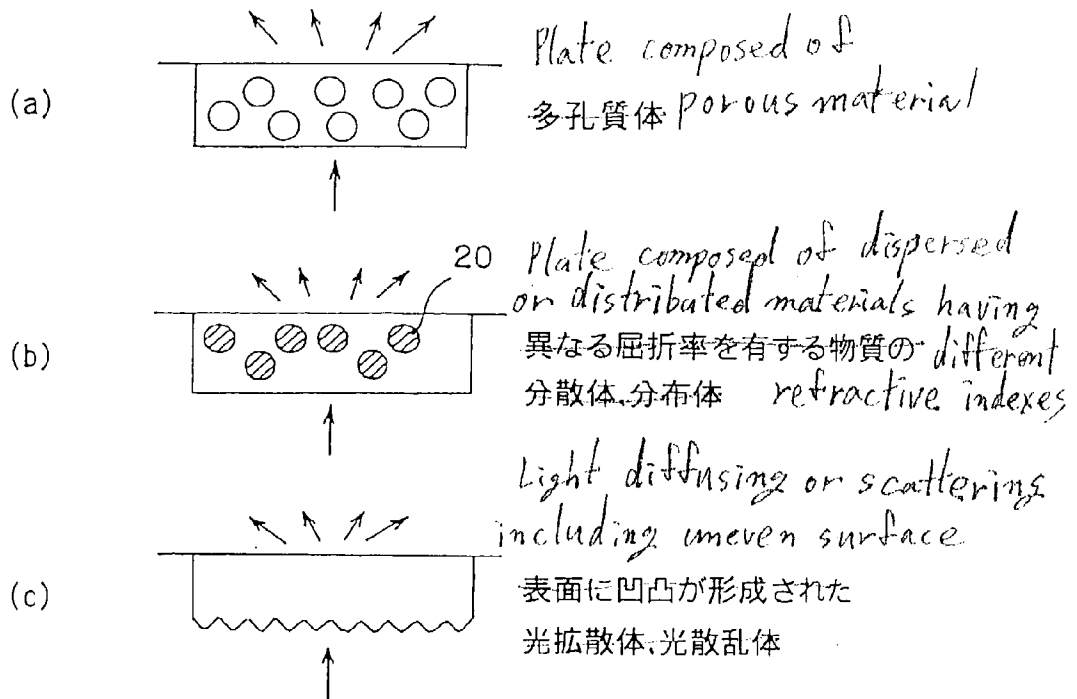 (a)
Plate composed of
多孔質体 porous material
(b)
20
Plate composed of dispersed
or distributed materials having
異なる屈折率を有する物質の different
分散体、分布体 refractive indexes
(c)
Light diffusing or scattering
including uneven surface
表面に凹凸が形成された
光拡散体、光散乱体